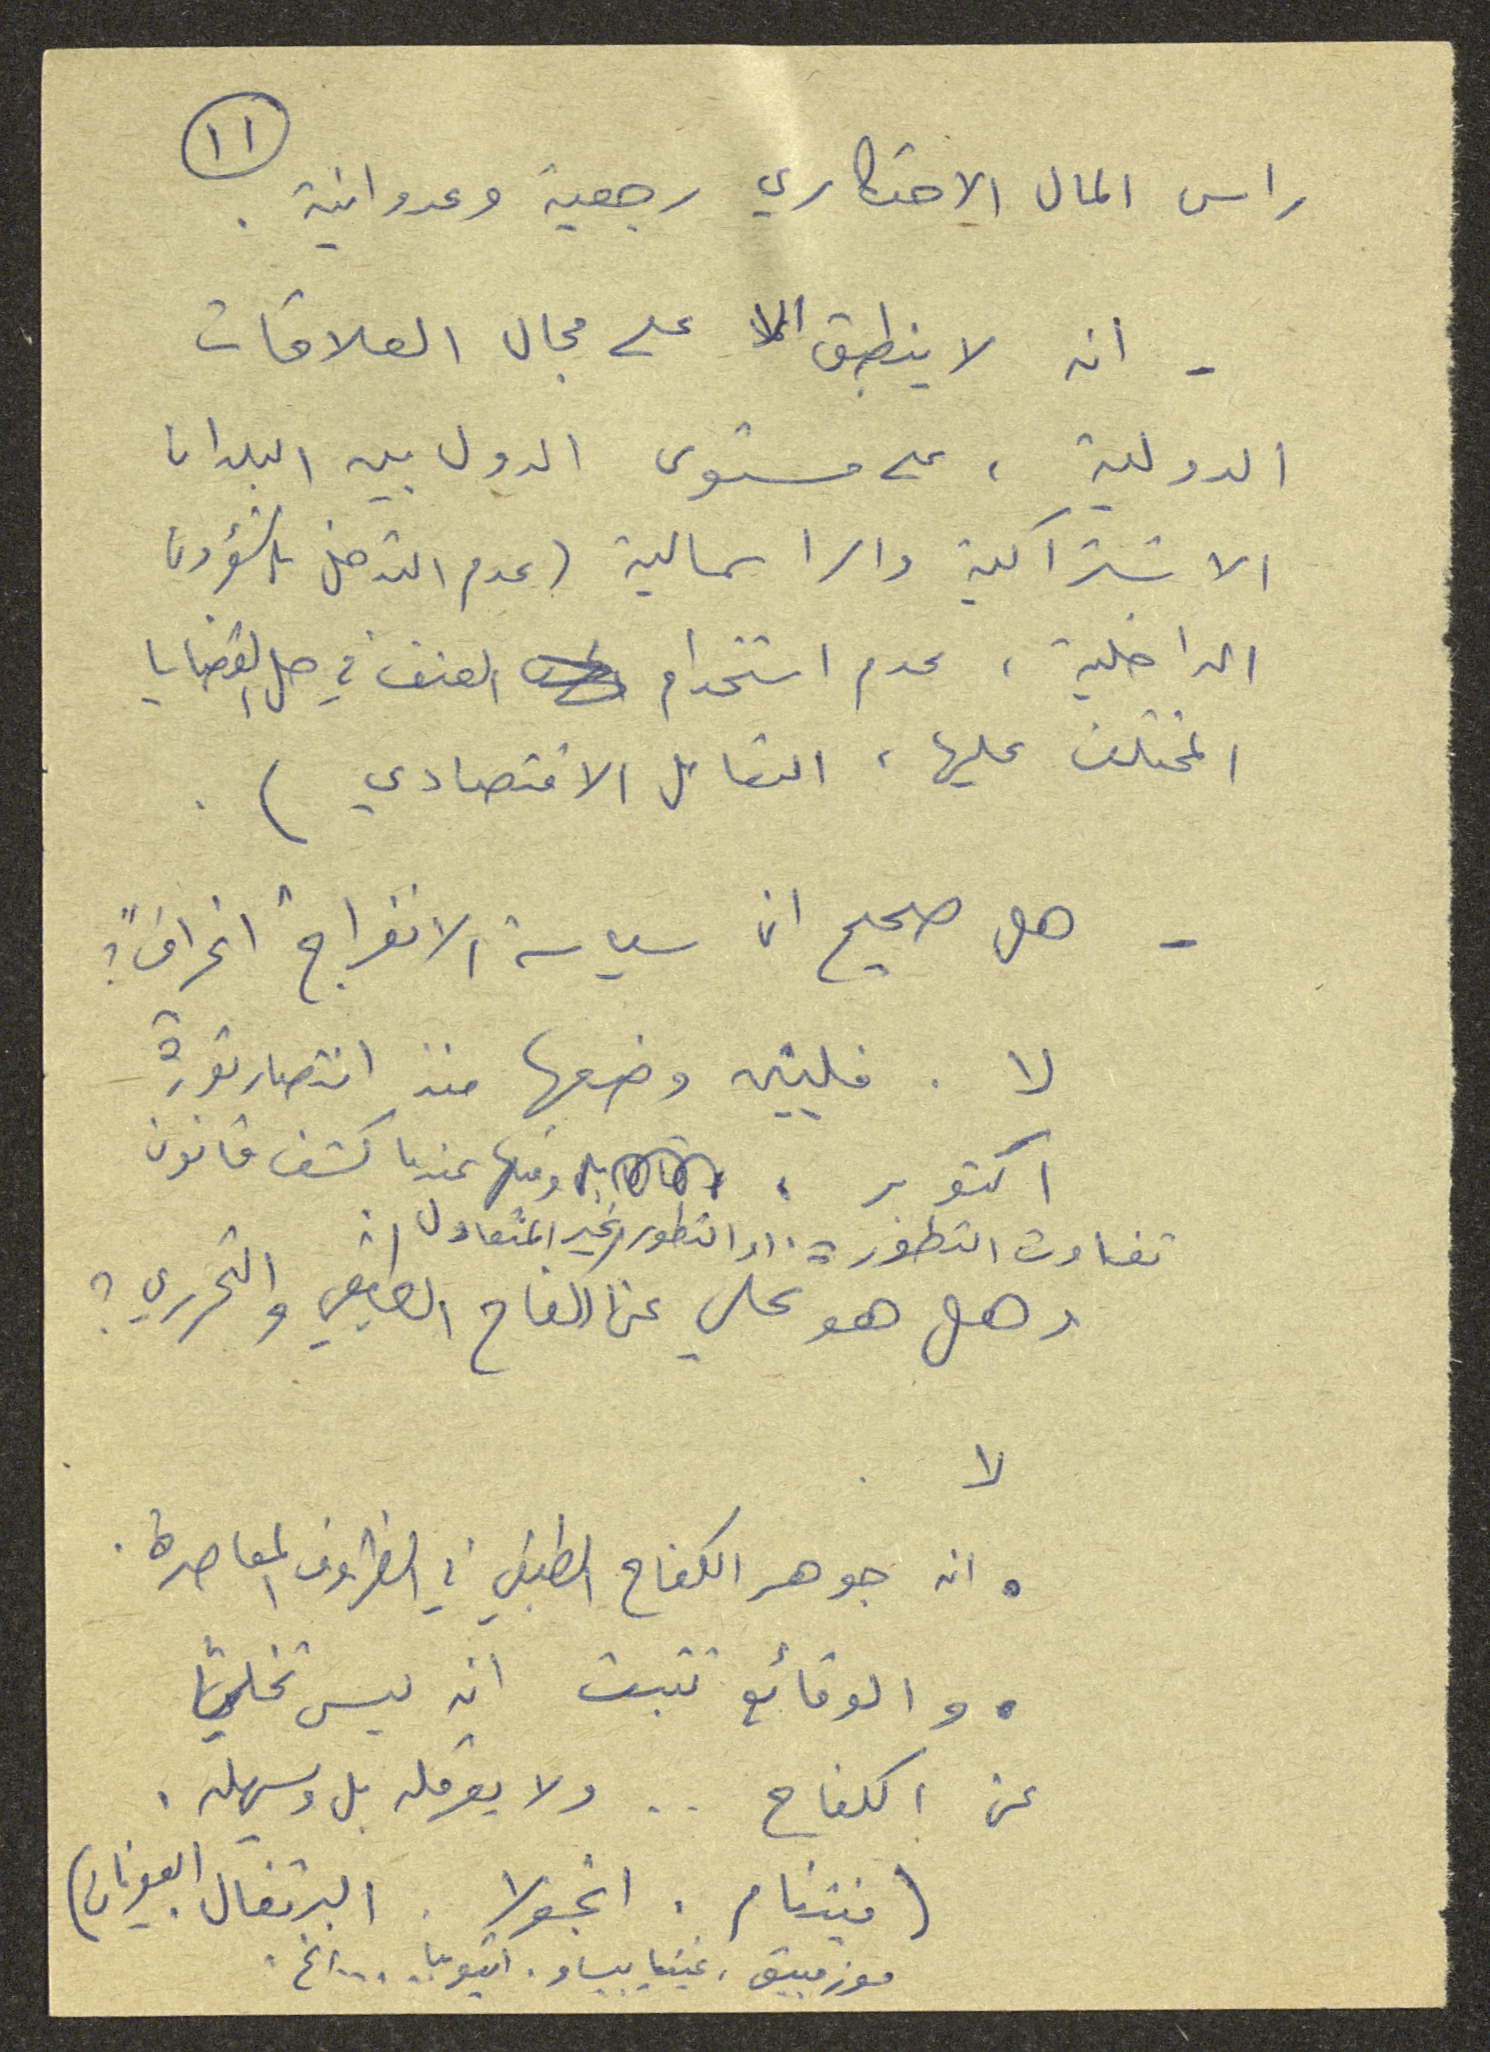 ١١
راس المال الاحتكاري رجعية وعدوانية .
- انه لا ينطبق الا على مجال العلاقات
الدولية ، على مستوى الدول بين البلدان
الاشتراكية والراسمالية (عدم التدخل بالشؤون
الداخلية ، عدم استخدام العنف في حل القضايا
المختلف عليها ، التعامل الاقتصادي ) .
- هل صحيح ان سياسة الانفراج "انحراف" ؟
لا . فلينين وضعها منذ انتصار ثورة
اكتوبر ، بل وقبلها عندما كشف قانون
تفاوت التطور . او التطور الغير المتعادل
وهل هو تخلي عن الكفاح الطبقي والتحرري ؟
لا .
• انه جوهر الكفاح الطبقي في الظروف المعاصرة .
• والوقائع تثبت انه ليس تخليا
عن الكفاح .. ولا يعرقله بل ويسهله .
(فيتنام . انجولا . البرتغال . اليونان)
موزمبيق . غينيا بيساو . اثيوبيا .... الخ .